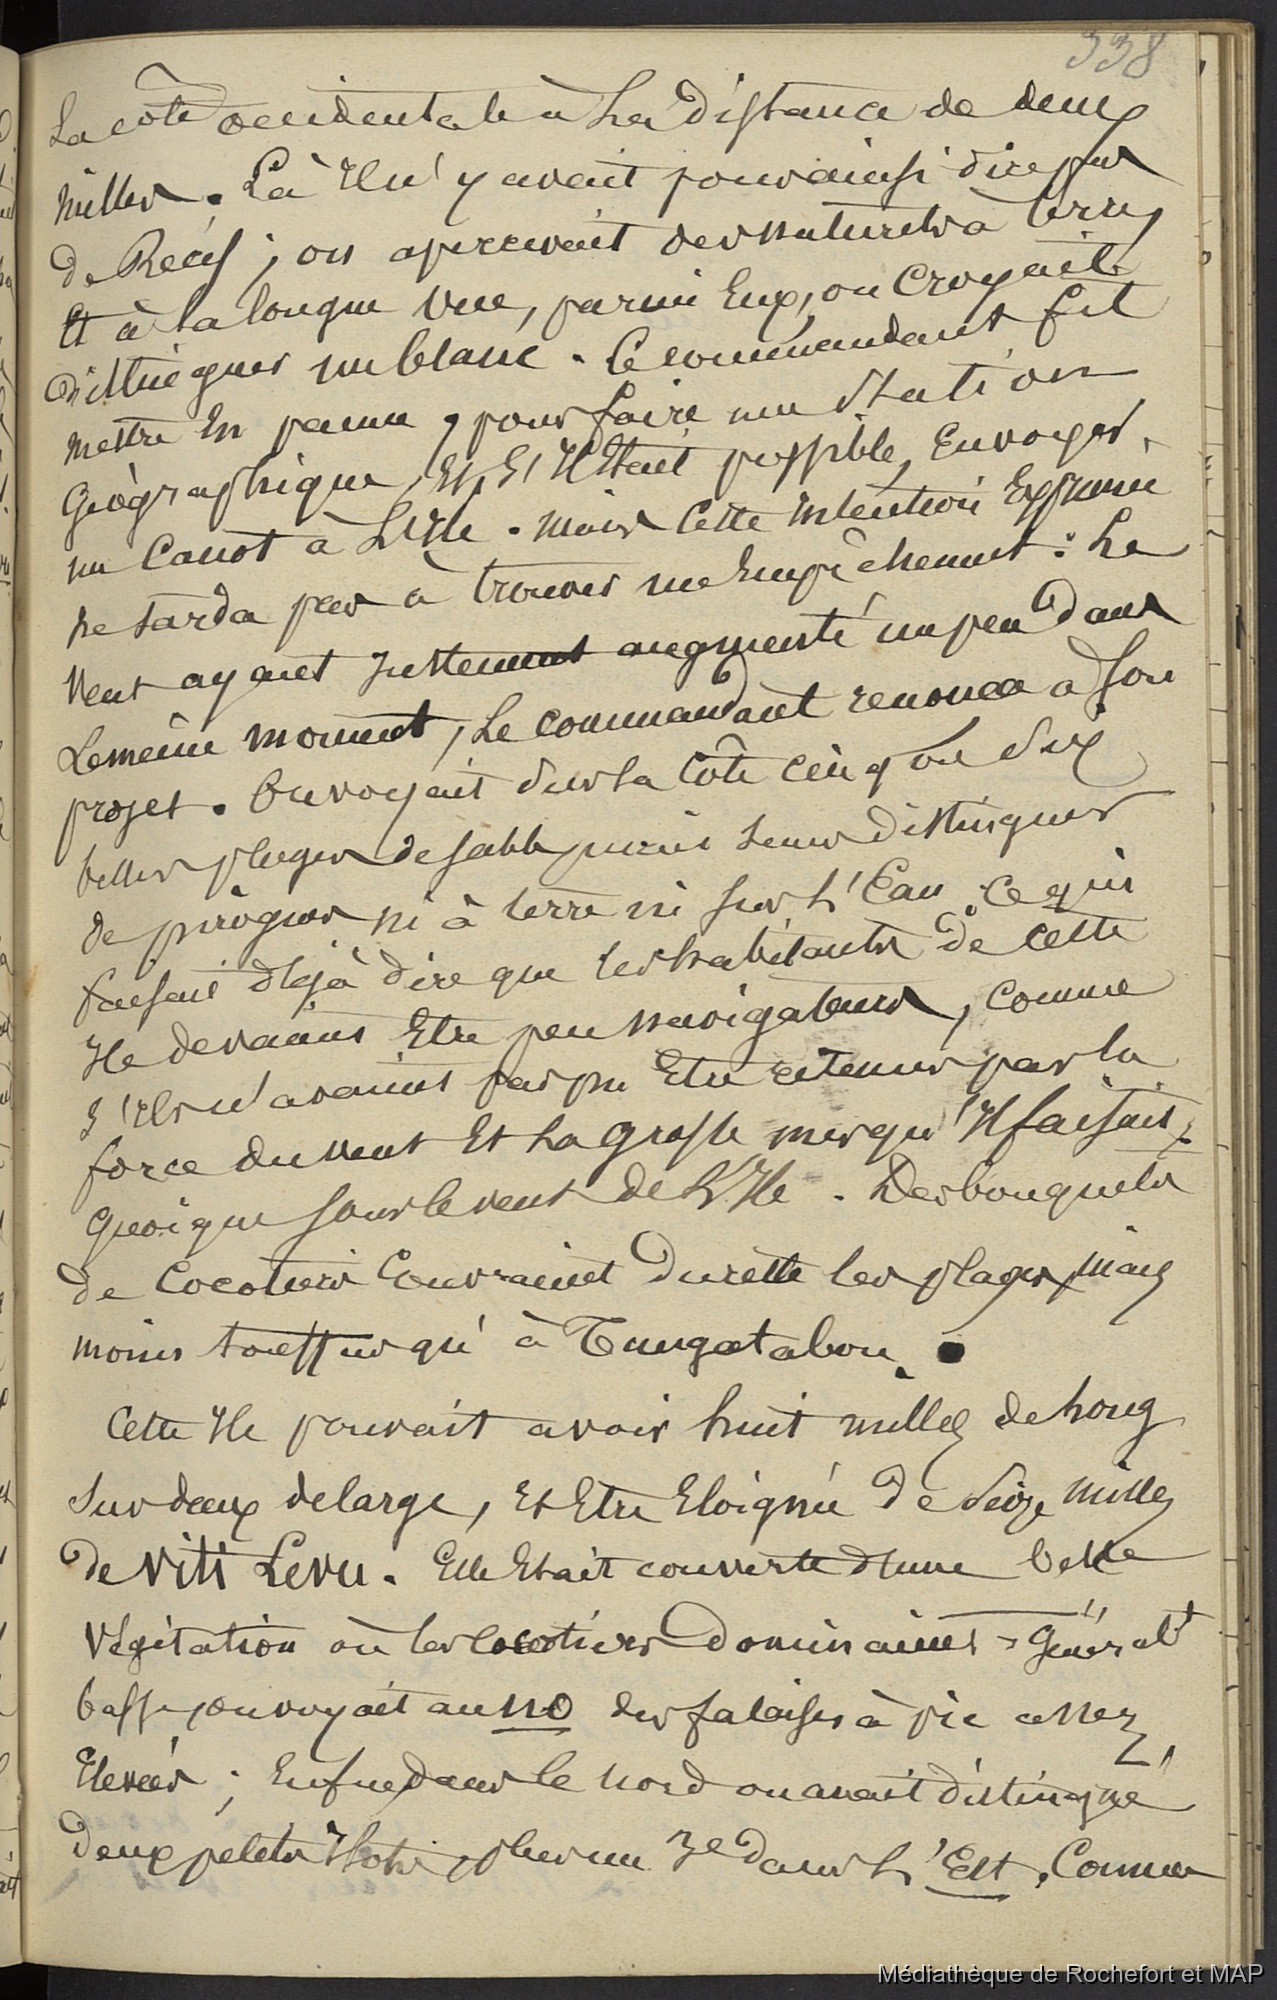 338
La côte occidentale à La Distance de deux
Milles. Là Il n'y avait pour ainsi dire pas
de Récif ; on apercevait des naturels à terre
Et à la longue Vue, parmi Eux, on Croyait
Distinguer un blanc. Le commandant fit
mettre En panne, pour faire une Station
Géographique, Et, S'Il Etait possible, Envoyer
un Canot à L'Ile. Mais Cette Intention Exprimée
ne tarda pas à trouver un Empêchement : Le
Vent ayant Justement augmenté un peu Dans
Le même moment, Le commandant renonca à Son
projet. On voyait Sur la Côte cinq ou Six
belles plages de sable, mais Sans Distinguer
de pirogues ni à terre ni Sur L'Eau, Ce qui
faisait déjà dire que les habitants De Cette
Ile devaient Etre peu navigateurs, Comme
S'Ils n'avaient pas pu Etre retenus par la
force du vent Et La grosse mer qu'Il faisait,
quoique Sous le vent de L'Ile. Des bouquets
de Cocotiers Couvraient Du reste les plages, Mais
moins touffus qu'à Tungatabou.
Cette Ile pouvait avoir huit milles de Long
Sur deux de large, Et Etre Eloignée De Seize Milles
De Viti Levu. Elle Etait couverte d'une belle
Végétation où les Cocotiers Dominaient. Généralt
basse, on voyait au NO des falaises à pic assez
Elevées ; Enfin dans le Nord on avait distingué
Deux petits Ilots, plus un 3e dans L'Est. Comme
Médiathèque de Rochefort et MAP